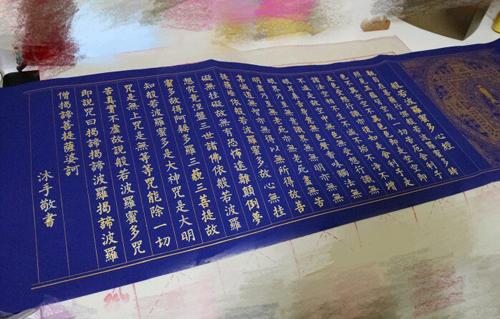 般若波羅蜜多心經
觀自在菩薩行深般若波羅蜜多時
照見五蘊皆空度一切苦厄舍利子
色不異空空不異色色即是空空即
是色受想行識亦復如是舍利子是
諸法空相不生不滅不垢不淨不增
不減是故空中無色無受想行識無
眼耳鼻舌身意無色聲香味觸法無
眼界乃至無意識界無無明亦無無
明盡乃至無老死亦無老死盡無苦
集滅道無智亦無得以無所得故菩
提薩埵依般若波羅蜜多故心無罣
礙無罣礙故無有恐怖遠離顛倒夢
想究竟涅槃三世諸佛依般若波羅
蜜多故得阿耨多羅三藐三菩提故
知般若波羅蜜多是大神咒是大明
咒是無上咒是無等等咒能除一切
苦真實不虛故說般若波羅蜜多咒
即說咒曰揭諦揭諦波羅揭諦波羅
僧揭諦菩提薩婆訶
沐手敬書